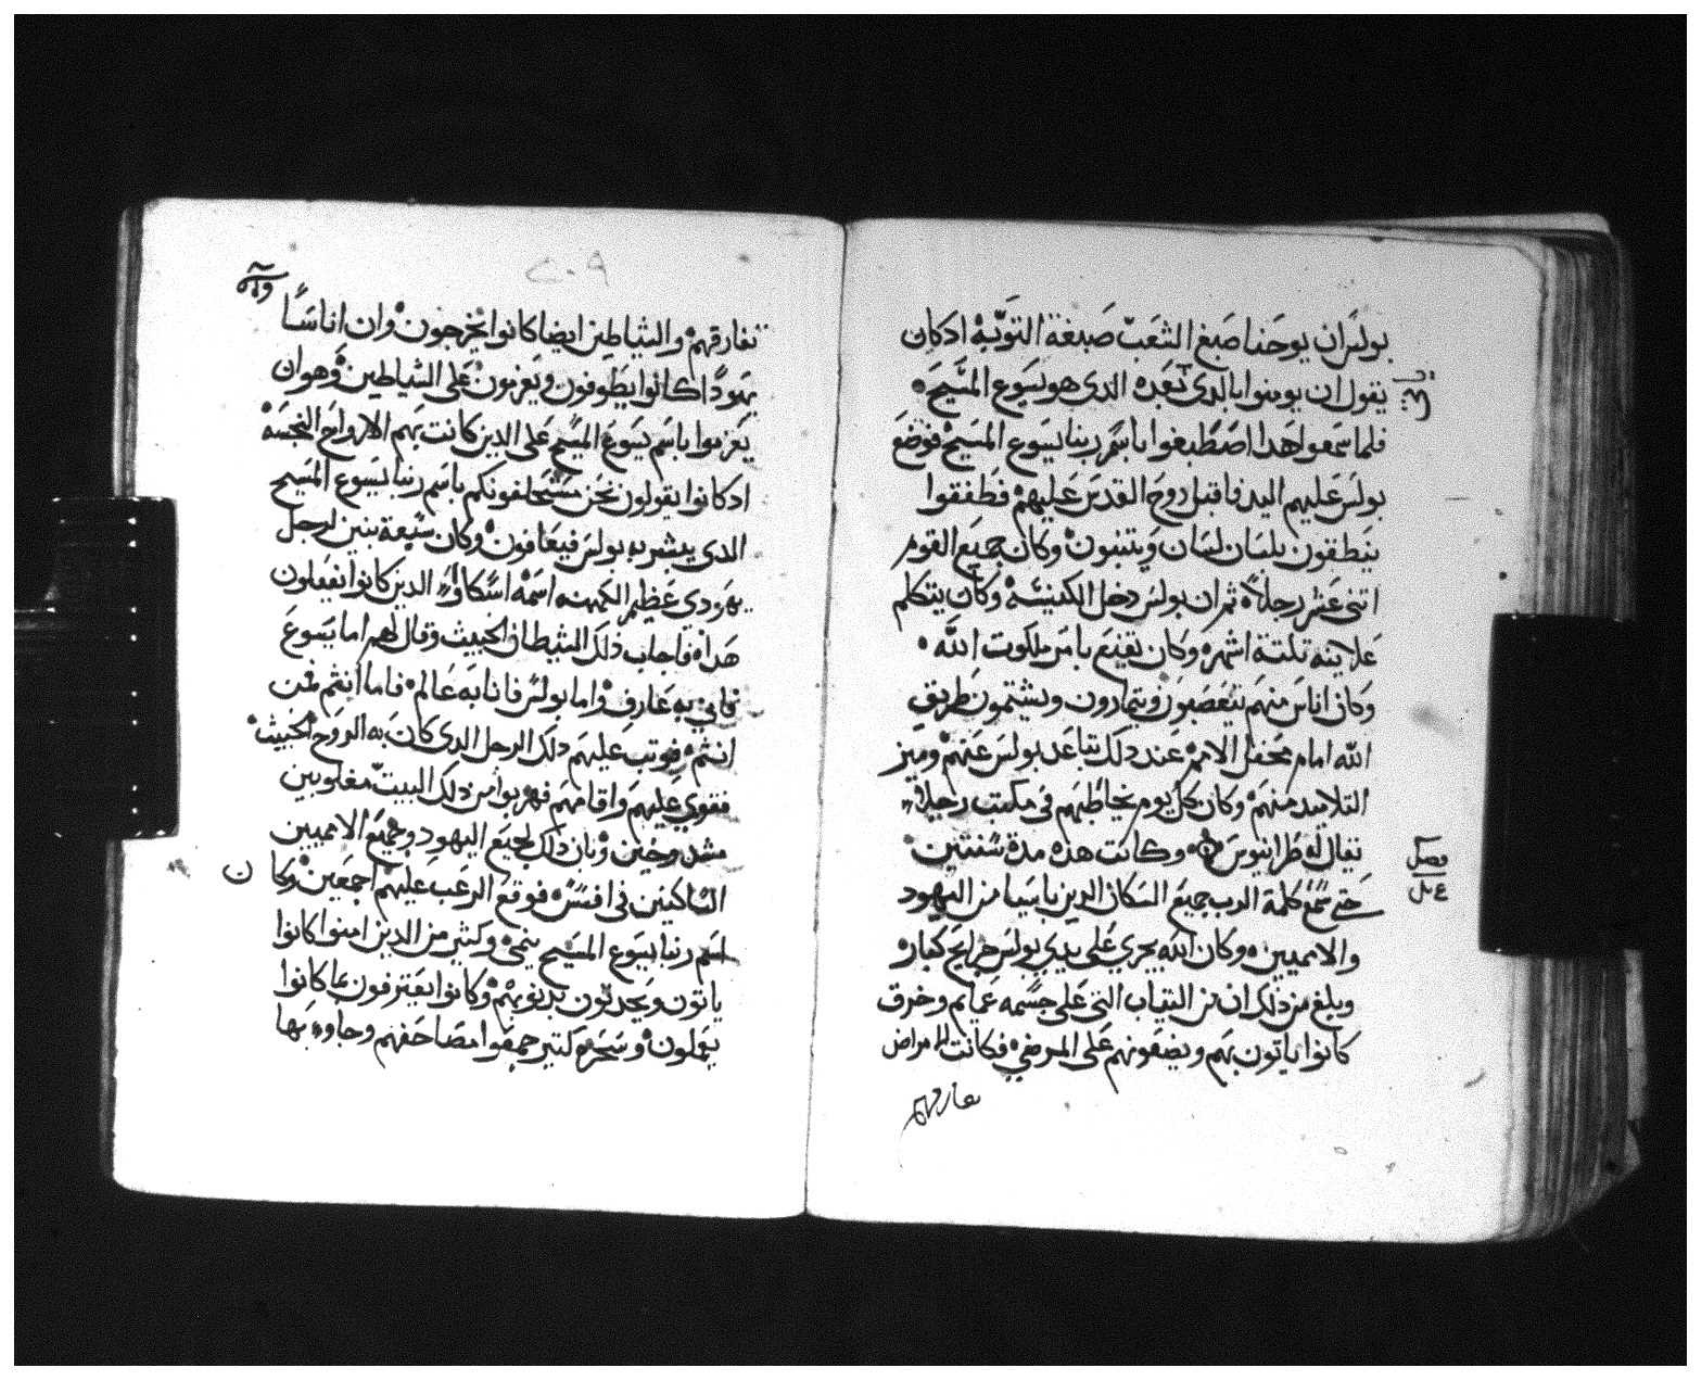 بولس ان يوحنا صبغ الشعب صبغة التوبه ادكان
يقول ان يومنوا بالدى بعده الدى هو يسوع المسيح
فلما سمعوا هدا اصطبغوا باسم ربنا يسوع المسيح فوضع
بولس عليهم اليد فاقبل روح القدس عليهم فطفقوا
ينطقون بلسان لسان ويتنبون وكان جميع القوم
اتنى عشر رجلاً ثم ان بولس دخل الكنيسه وكان يتكلم
علانيه تلتة اشهر وكان يقنع بامر ملكوت الله
وكان اناس منهم يتعصبون ويتمارون ويشتمون طريق
الله امام محفل الامم عند دلك تباعد بولس عنهم وميز
التلاميد منهم وكان كل يوم يخاطبهم فى مكتب رجل
يقال له طرانيوس وكانت هده مدة سنتين
حتى سمع كلمة الرب جميع السكان الدين باسيا من اليهود
والامميين وكان الله يجري على يدي بولس جرايح كبار
وبلغ من دلك ان من التياب التى على جسمه عمايم وخرق
كانوا ياتون بهم ويضعونهم على المرضي فكانت الامراض
تفارقهم
فصل
٢٠٩
تفارقهم والشياطين ايضا كانوا يخرجون وان اناسًا
يهودًا كانوا يطوفون ويعزمون على الشياطين وهو ان
يعزموا باسم يسوع المسيح على الدين كانت بهم الارواح النجسه
ادكانوا يقولون نحن نستحلفونكم باسم ربنا يسوع المسيح
الدى يبشر به بولس فيعافون وكان سبعة بنين لرجل
يهودي عظيم الكهنه اسمه اسكاوا الدين كانوا يفعلون
هدا فاجاب دلك الشيطان الخبيث وقال لهم اما يسوع
فاني به عارف واما بولس فانا به عالم فاما انتم فمن
انتم فوتب عليهم دلك الرجل الدى كان به الروح الخبيث
فقوي عليهم واقامهم فهربوا من دلك البيت مغلوبين
مشدوخين وبان دلك لجميع اليهود وجميع الامميين
الساكنين فى افسس فوقع الرعب عليهم اجمعين وكان
اسم ربنا يسوع المسيح ينمى وكتير من الدين امنوا كانوا
ياتون ويحدتون بدنوبهم وكانوا يعترفون بما كانوا
يعملون وسحره كتير جمعوا مصاحفهم وجاوا بها